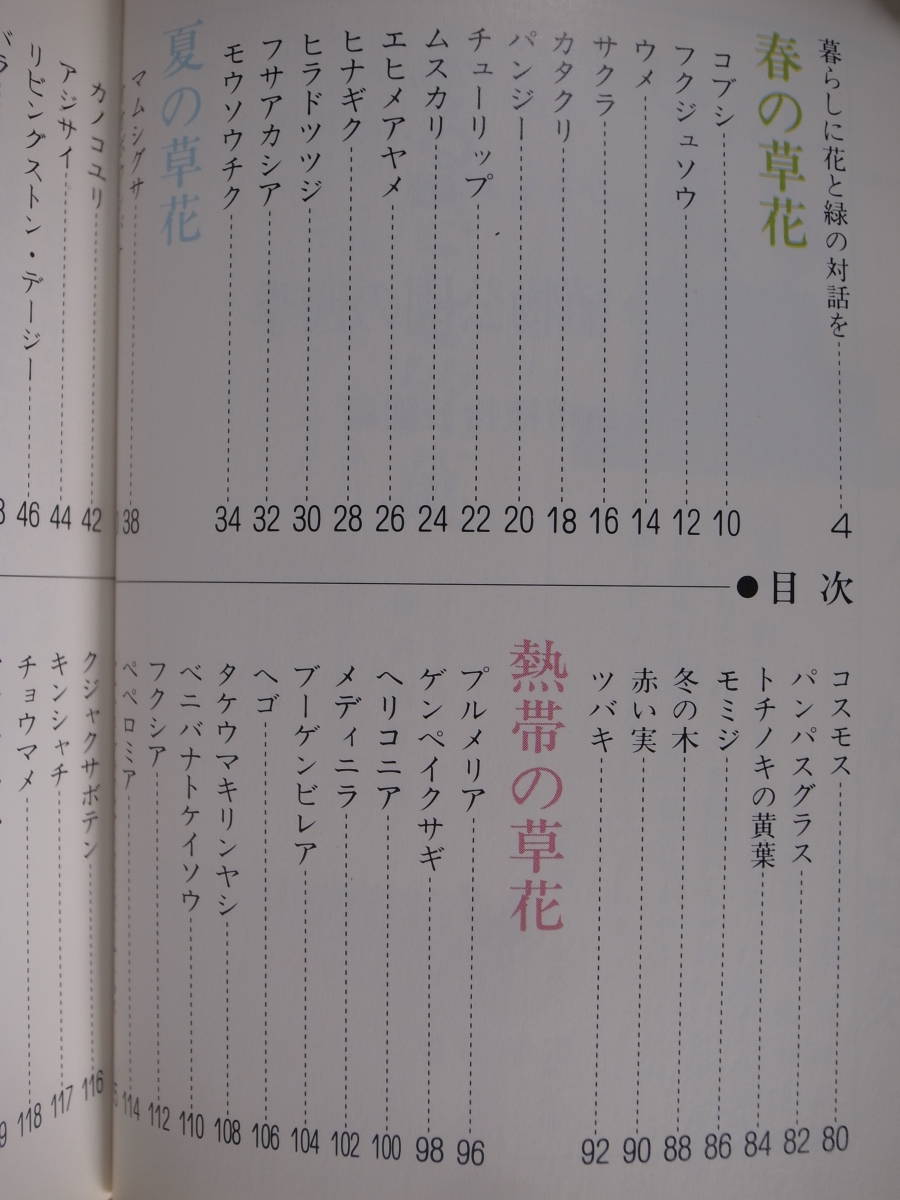 暮らしに花と緑の対話を 4
春の草花
コブシ 10
フクジュソウ 12
ウメ 14
サクラ 16
カタクリ 18
パンジー 20
チューリップ 22
ムスカリ 24
エヒメアヤメ 26
ヒナギク 28
ヒラドツツジ 30
フサアカシア 32
モウソウチク 34
夏の草花
マムシグサ 38
カノコユリ 42
アジサイ 44
リビングストン・デージー 46
●目次
コスモス 80
パンパスグラス 82
トチノキの黄葉 84
モミジ 86
冬の木 88
赤い実 90
ツバキ 92
熱帯の草花
プルメリア 96
ゲンペイクサギ 98
ヘリコニア 100
メディニラ 102
ブーゲンビレア 104
ヘゴ 106
タケウマキリンヤシ 108
ベニバナトケイソウ 110
フクシア 112
ペペロミア 114
クジャクサボテン 116
キンシャチ 117
チョウマメ 118